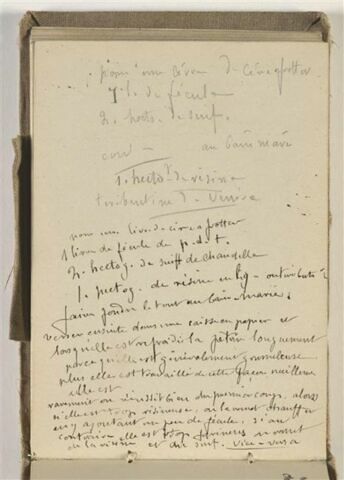 pour une livre de cire à frotter
1 l. de fécule
2. hecto. de suif.
au bain marie
1. hecto. de résine
térébentine de Venise
pour une livre de cire à frotter
1 livre de fécule de p. d. t.
2. hectog. de suiff de chandelle
1. hectog. de résine en
faire fondre le tout au bain-marie.
verser ensuite dans une caisse en papier et
lorsqu'elle est refroidie la pétrir longuement
parce qu'elle est généralement grumeleuse
plus elle est travaillée de cette façon meilleure
elle est
rarement on réussit bien du premier coup, alors
si elle est trop résineuse, on la remet chauffer
en y ajoutant un peu de fécule, si au
contraire elle est trop farineuse on remet
de la résine et du suif. vice-versa